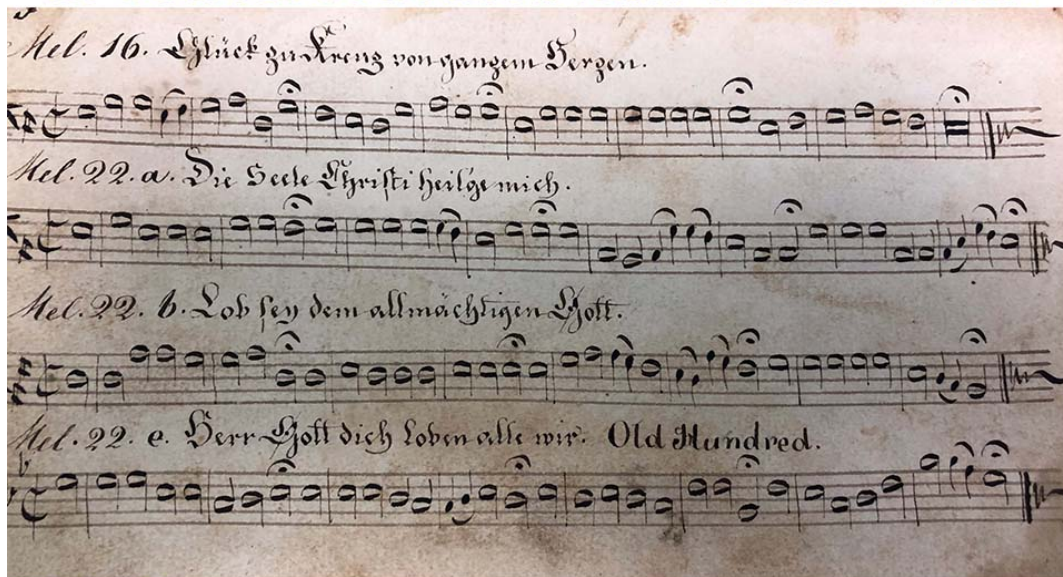 Mel. 16. Glück zu Kreuz von ganzem Herzen.
Mel. 22. a. Die Seele Christi heil'ge mich.
Mel. 22. b. Lob sey dem allmächtigen Gott.
Mel. 22. e. Herr Gott dich loben alle wir. Old Hundred.